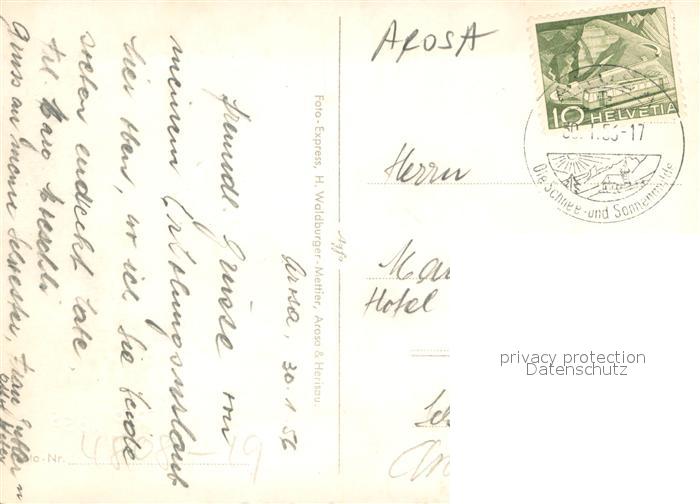 AROSA
10 HELVETIA
30.1.56-17
Die Schnee- und Sonnenhalde
Herrn
Hotel
privacy protection
Datenschutz
Foto-Express, H. Waldburger-Mettier, Arosa & Herisau.
Arosa, 30.1.56
freundl. Grüsse von
meinem Erholungsurlaub
hier oben, wo ich Sie
soeben entdeckt habe.
Frl.
Gruss an meine Schwester, Frau
to-Nr. 4808-19